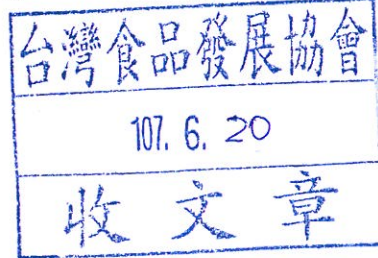 台灣食品發展協會
107. 6. 20
收文章